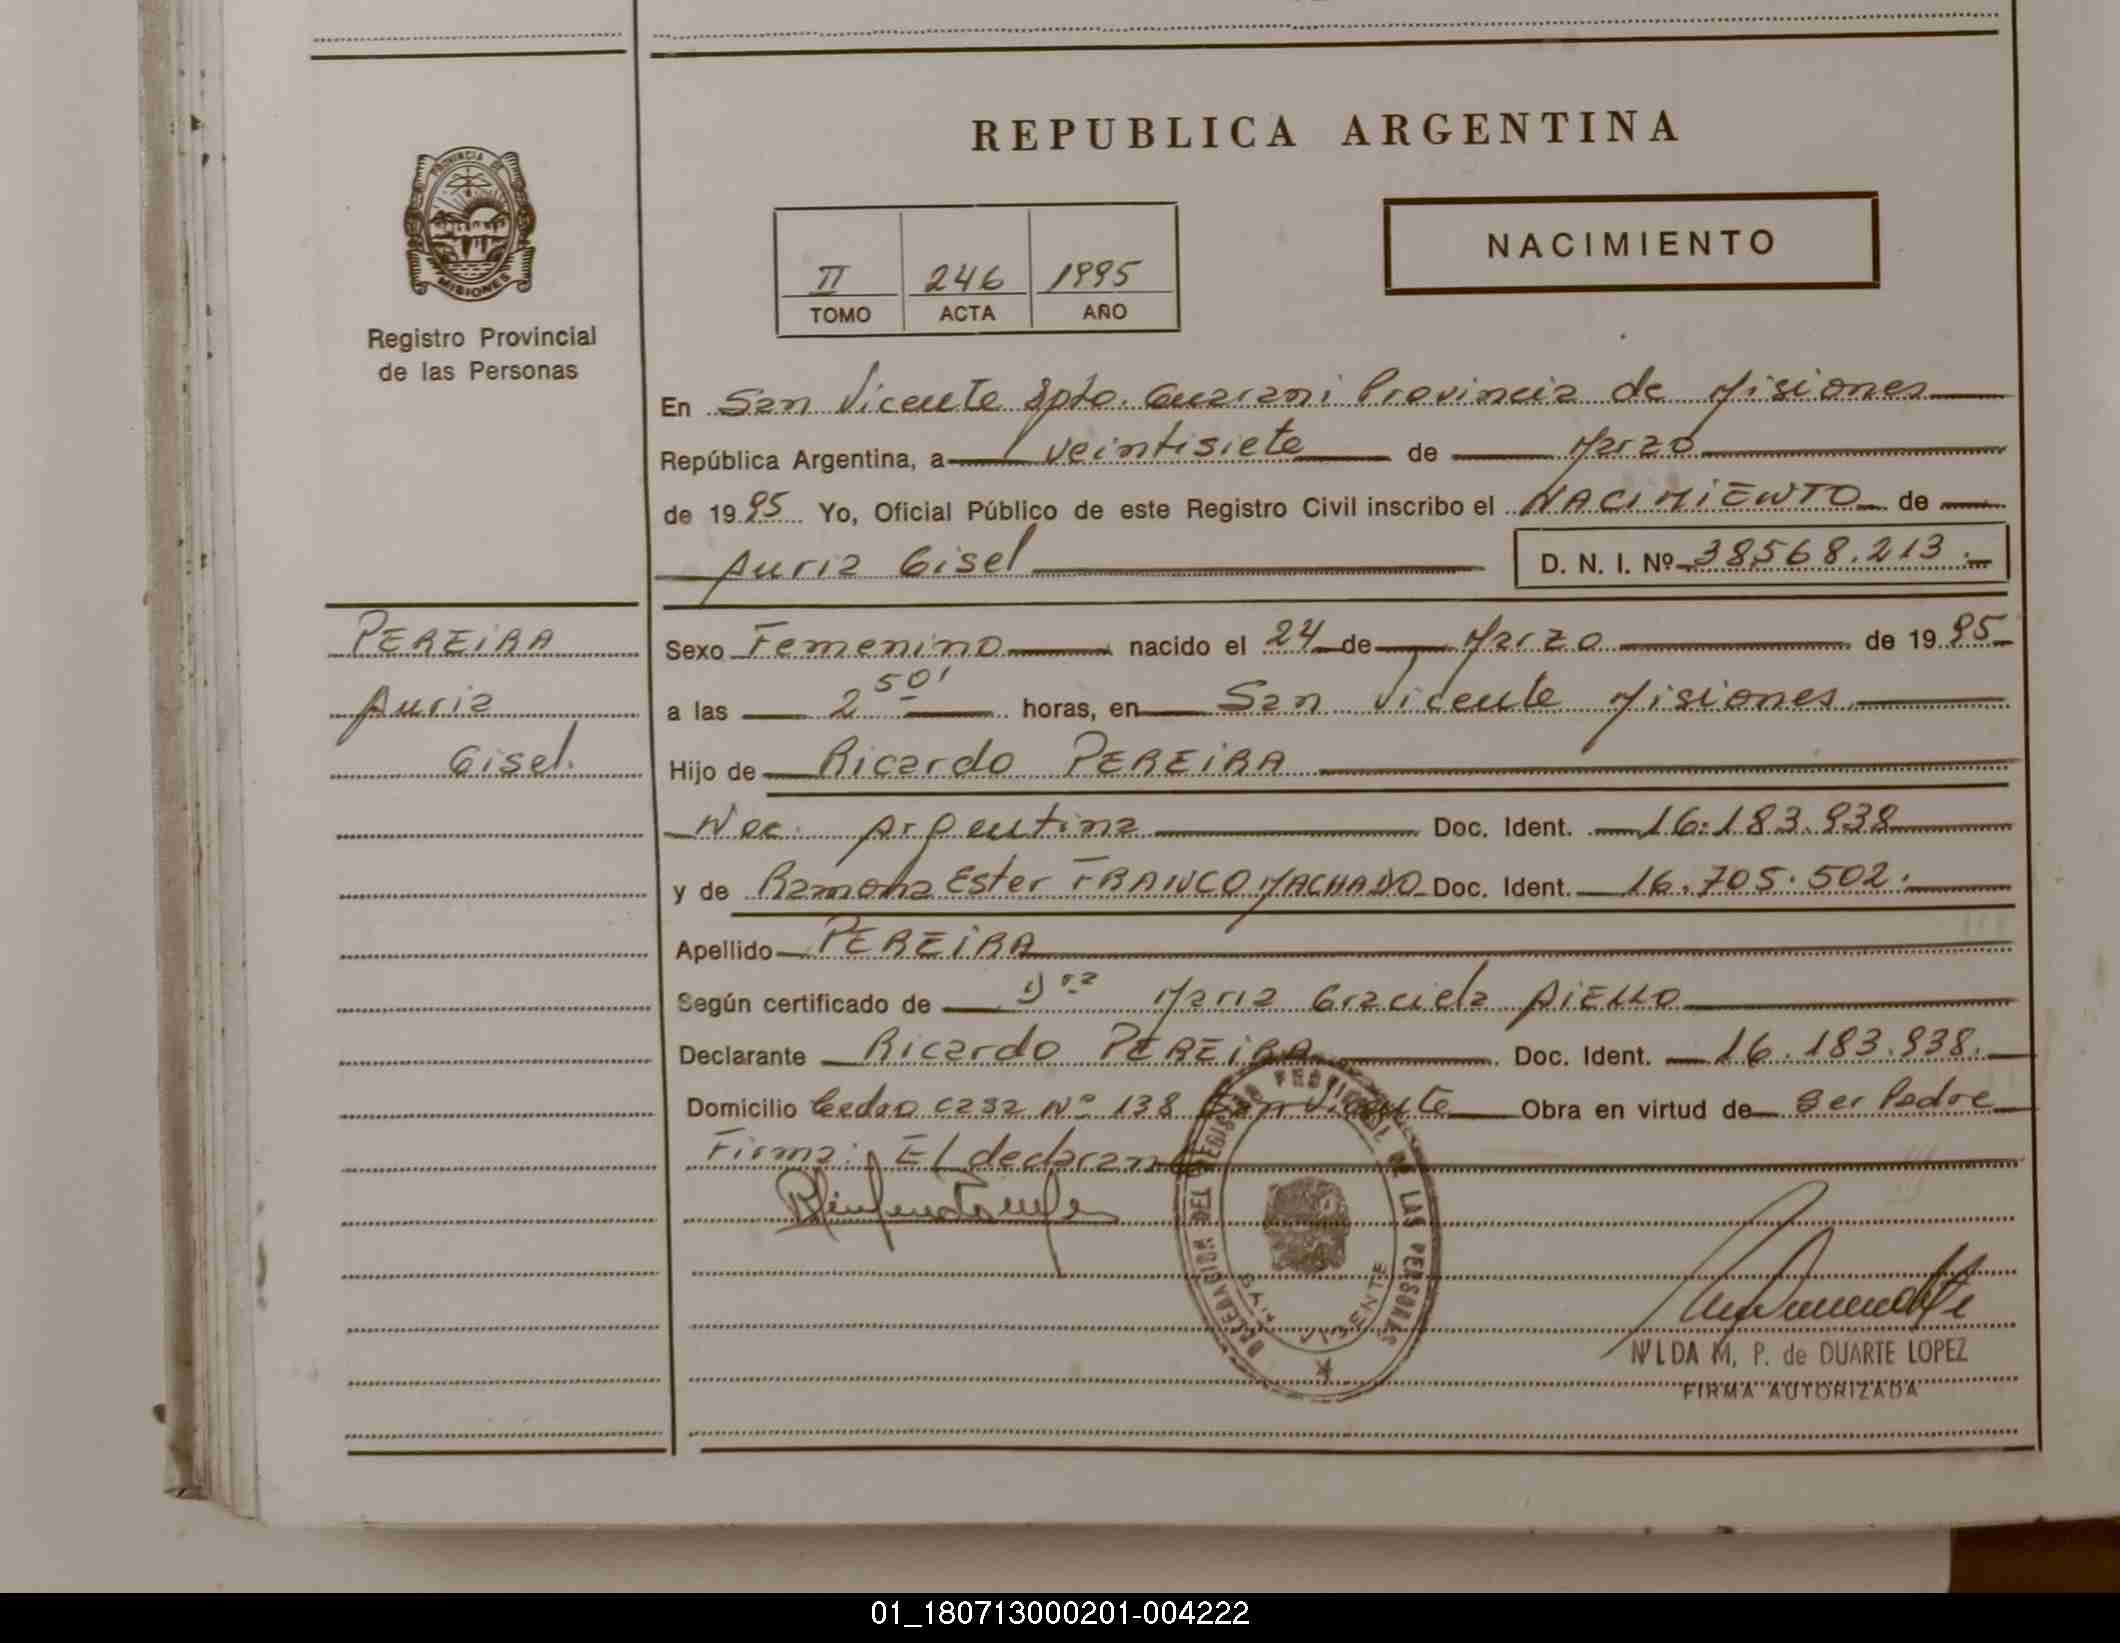 REPUBLICA ARGENTINA
PROVINCIA DE
MISIONES
Registro Provincial
de las Personas
NACIMIENTO
II 246 1995
TOMO ACTA AÑO
En San Vicente Dpto. Guarani Provincia de Misiones
República Argentina, a veintisiete de Marzo
de 1995 Yo, Oficial Público de este Registro Civil inscribo el NACIMIENTO de
Auria Gisel D. N. I. Nº 38568.213.
PEREIRA
Auria
Gisel.
Sexo Femenino nacido el 24 de Marzo de 1995
a las 2 50' horas, en San Vicente Misiones
Hijo de Ricardo PEREIRA
Nac. Argentina Doc. Ident. 16.183.938
y de Ramona Ester FRANCO MACHADO Doc. Ident. 16.705.502.
Apellido PEREIRA
Según certificado de Dra Maria Graciela AIELLO
Declarante Ricardo PEREIRA Doc. Ident. 16.183.938.
Domicilio Cedro casa Nº 138 San Vicente Obra en virtud de Ser Padre
Firma: El declarante
DELEGACION DEL REGISTRO PROVINCIAL DE LAS PERSONAS
SAN VICENTE
NILDA M. P. de DUARTE LOPEZ
FIRMA AUTORIZADA
01_180713000201-004222